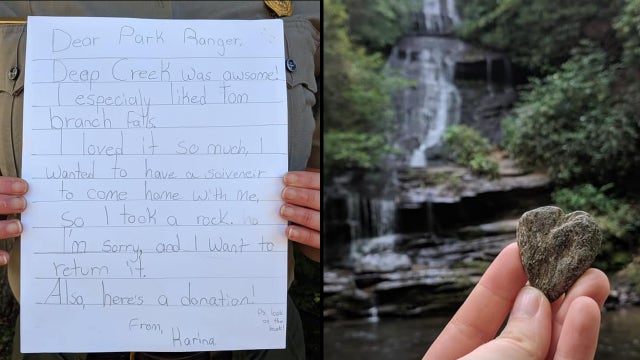 Dear Park Ranger,
Deep Creek was awsome!
I especialy liked Tom
branch falls.
I loved it so much, I
wanted to have a soiveneir
to come home with me,
so I took a rock.
I'm sorry, and I want to
return it.
Also, here's a donation!
From,
Karina
Ps. look
on the
back!